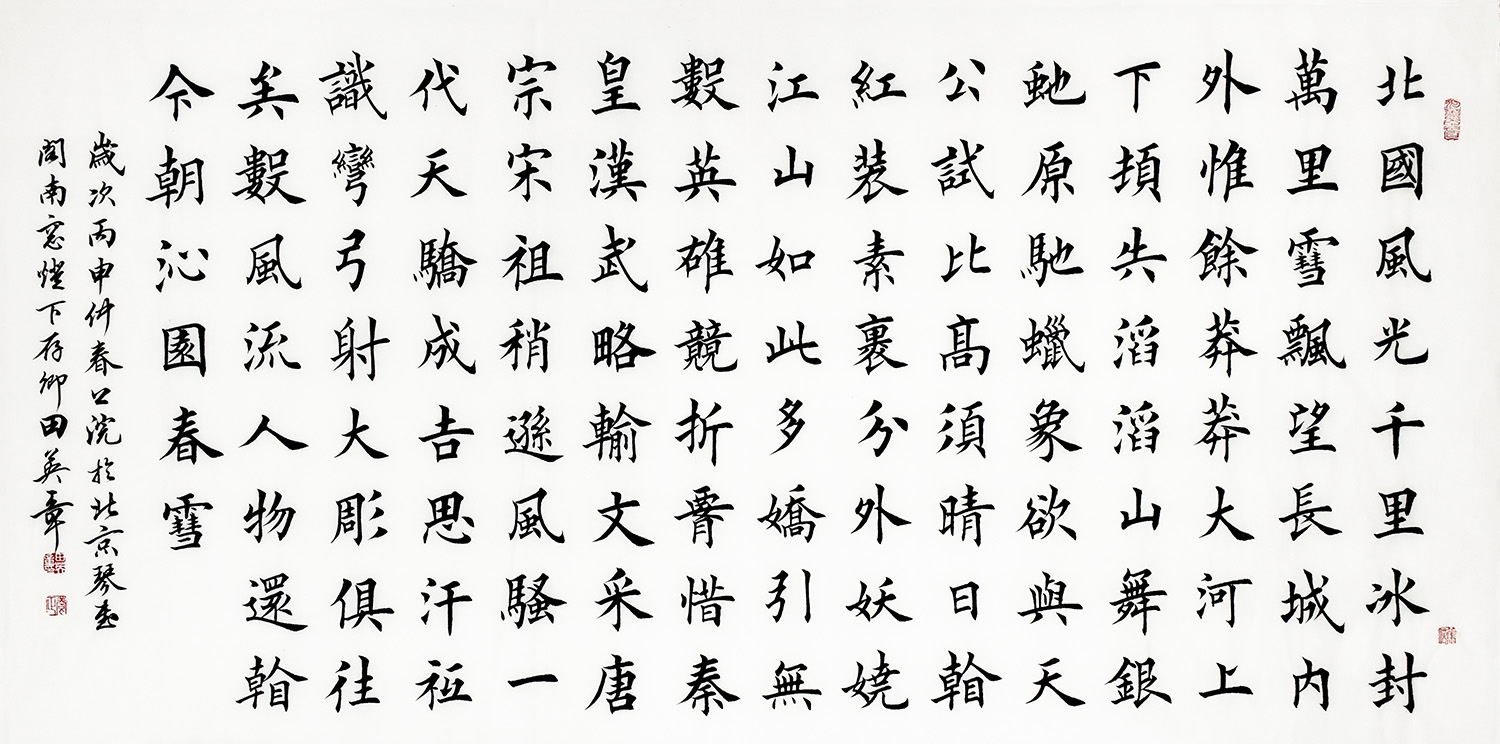 北國風光千里冰封
萬里雪飄望長城內
外惟餘莽莽大河上
下頓失滔滔山舞銀
虵原馳蠟象欲與天
公試比髙須晴日看
紅裝素裹分外妖嬈
江山如此多嬌引無
數英雄競折腰惜秦
皇漢武略輸文采唐
宗宋祖稍遜風騷一
代天驕成吉思汗祗
識彎弓射大彫俱往
矣數風流人物還看
今朝沁園春雪
歲次丙申仲春上浣於北京琴
閣南窓燈下存卿田英章